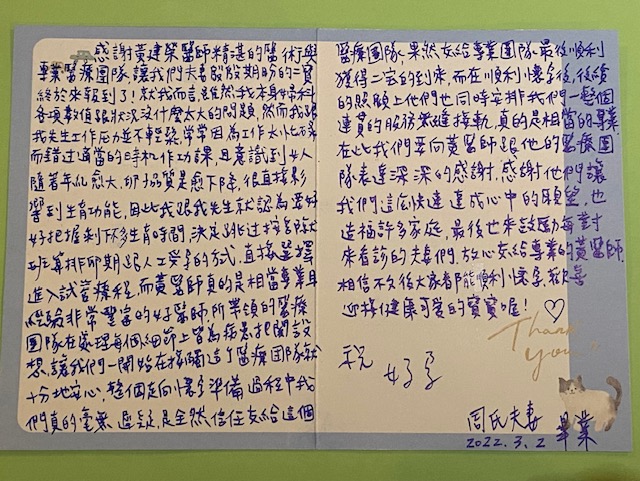 感謝黃建榮醫師精湛的醫術與
專業醫療團隊,讓我們夫妻殷殷期盼的二寶
終於來報到了!就我而言,雖然我本身婦科
各項數值跟狀況沒什麼太大的問題,然而我跟
我先生工作壓力並不輕鬆,常常因為工作大小事
而錯過適當的時機作功課,且意識到女人
隨著年紀愈大,卵子品質是愈下降,很直接影
響到生育功能,因此我跟我先生就認為要好
好把握剩下多生育時間,決定跳過按部就
班等排卵期跟人工受孕的方式,直接選擇
進入試管療程,而黃醫師真的是相當專業且
經驗非常豐富的好醫師,所帶領的醫療
團隊在處理每個細節上皆為病患把關設
想,讓我們一開始在接觸這了醫療團隊就
十分地安心,整個走向懷孕準備過程中我
們真的毫無遲疑,是全然信任交給這個
醫療團隊,果然交給專業團隊最後順利
獲得二寶的到來,而在順利懷孕後,後續
的照顧上他們也同時安排我們一整個
連貫的服務無縫接軌,真的是相當的專業.
在此我們要向黃醫師跟他的醫療團
隊表達深深的感謝,感謝他們讓
我們這麼快速達成心中的願望,也
造福許多家庭,最後也來鼓勵每對
來看診的夫妻們,放心交給專業的黃醫師.
相信不久後大家都能順利懷孕,歡喜
迎接健康可愛的寶寶喔!♡
Thank
you
祝
好孕
周氏夫妻 畢業
2022.3.2